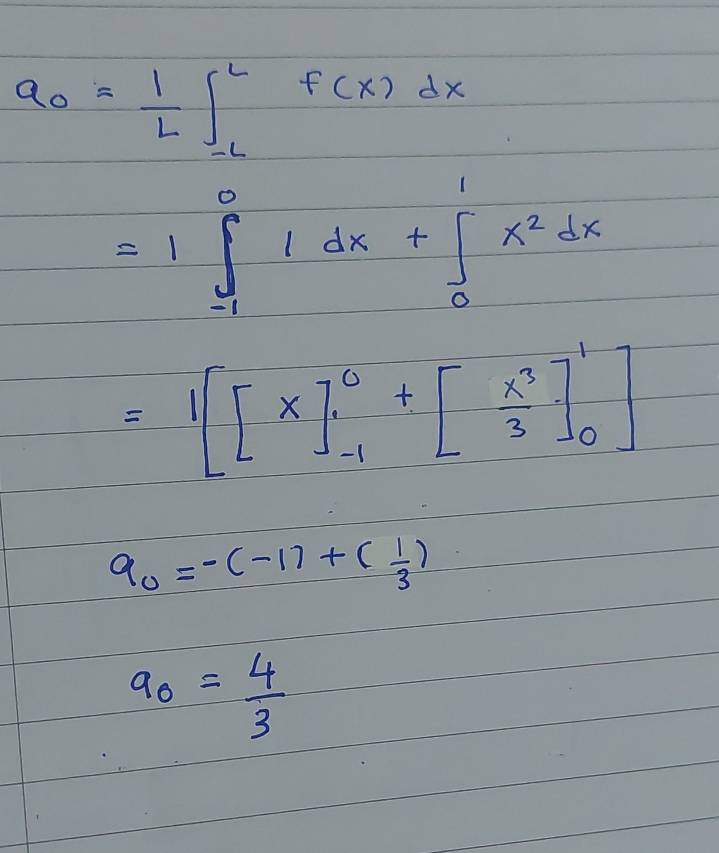 a₀ = 1/L ∫_{-L}^{L} f(x) dx
= 1 ∫_{-1}^{0} 1 dx + ∫_{0}^{1} x² dx
= 1[[x]_{-1}^{0} + [x³/3]_{0}^{1}]
a₀ = -(-1) + (1/3)
a₀ = 4/3